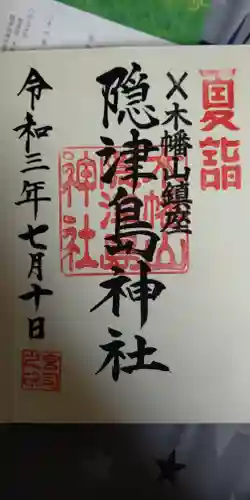 夏詣
〆木幡山鎮座
隠津島神社
令和三年七月十日
木幡山
隠津島
神社